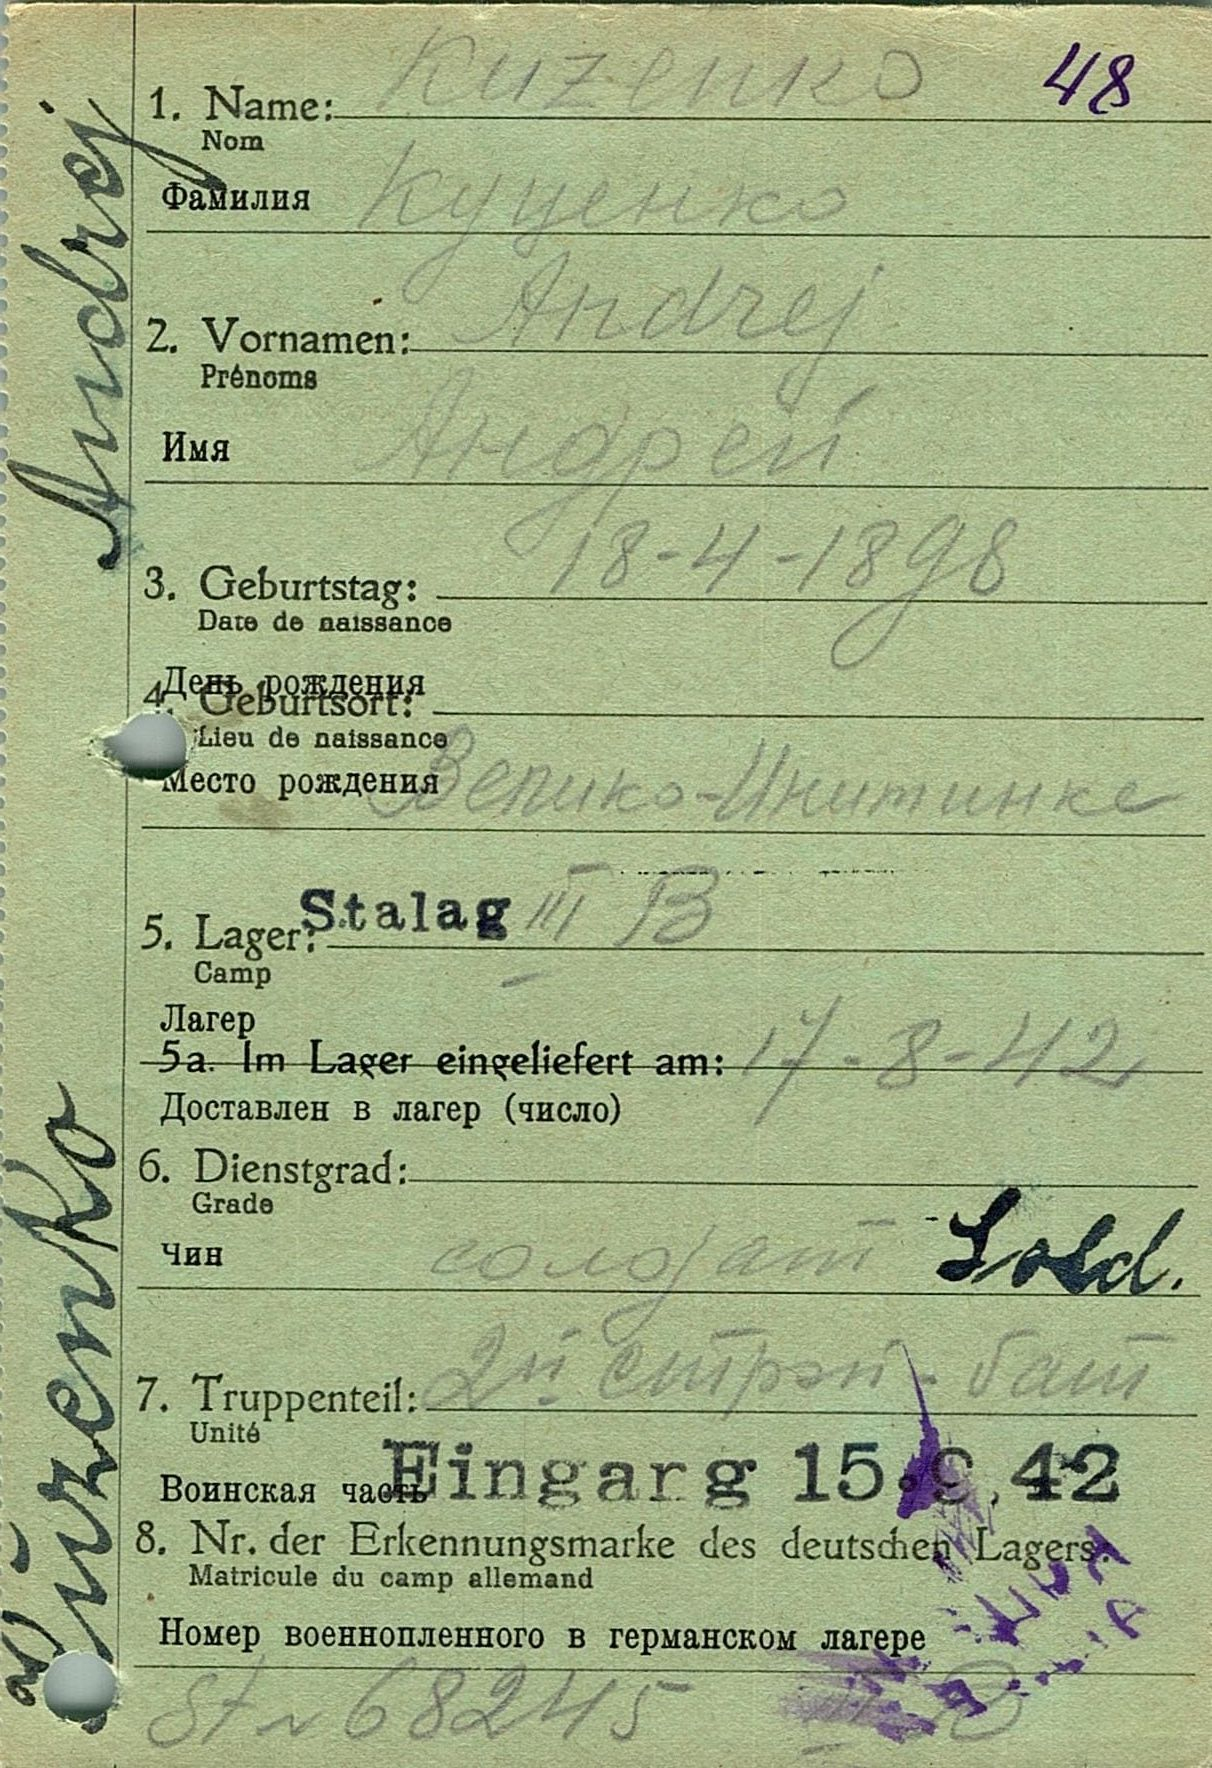 Kuzenko
48
1. Name:
Nom
Фамилия Куценко
Andrej
2. Vornamen:
Prénoms
Имя Андрей
18-4-1898
3. Geburtstag:
Date de naissance
День рождения
4. Geburtsort:
Lieu de naissance
Место рождения Велико-
5. Lager: Stalag III B
Camp
Лагер
5a. Im Lager eingeliefert am: 17-8-42
Доставлен в лагер (число)
6. Dienstgrad:
Grade
Чин солдат Sold.
7. Truppenteil: 2й строй-бат
Unité
Воинская часть Eingarg 15.9.42
8. Nr. der Erkennungsmarke des deutschen Lagers:
Matricule du camp allemand
Номер военнопленного в германском лагере
68245
Kuzenko Andrej